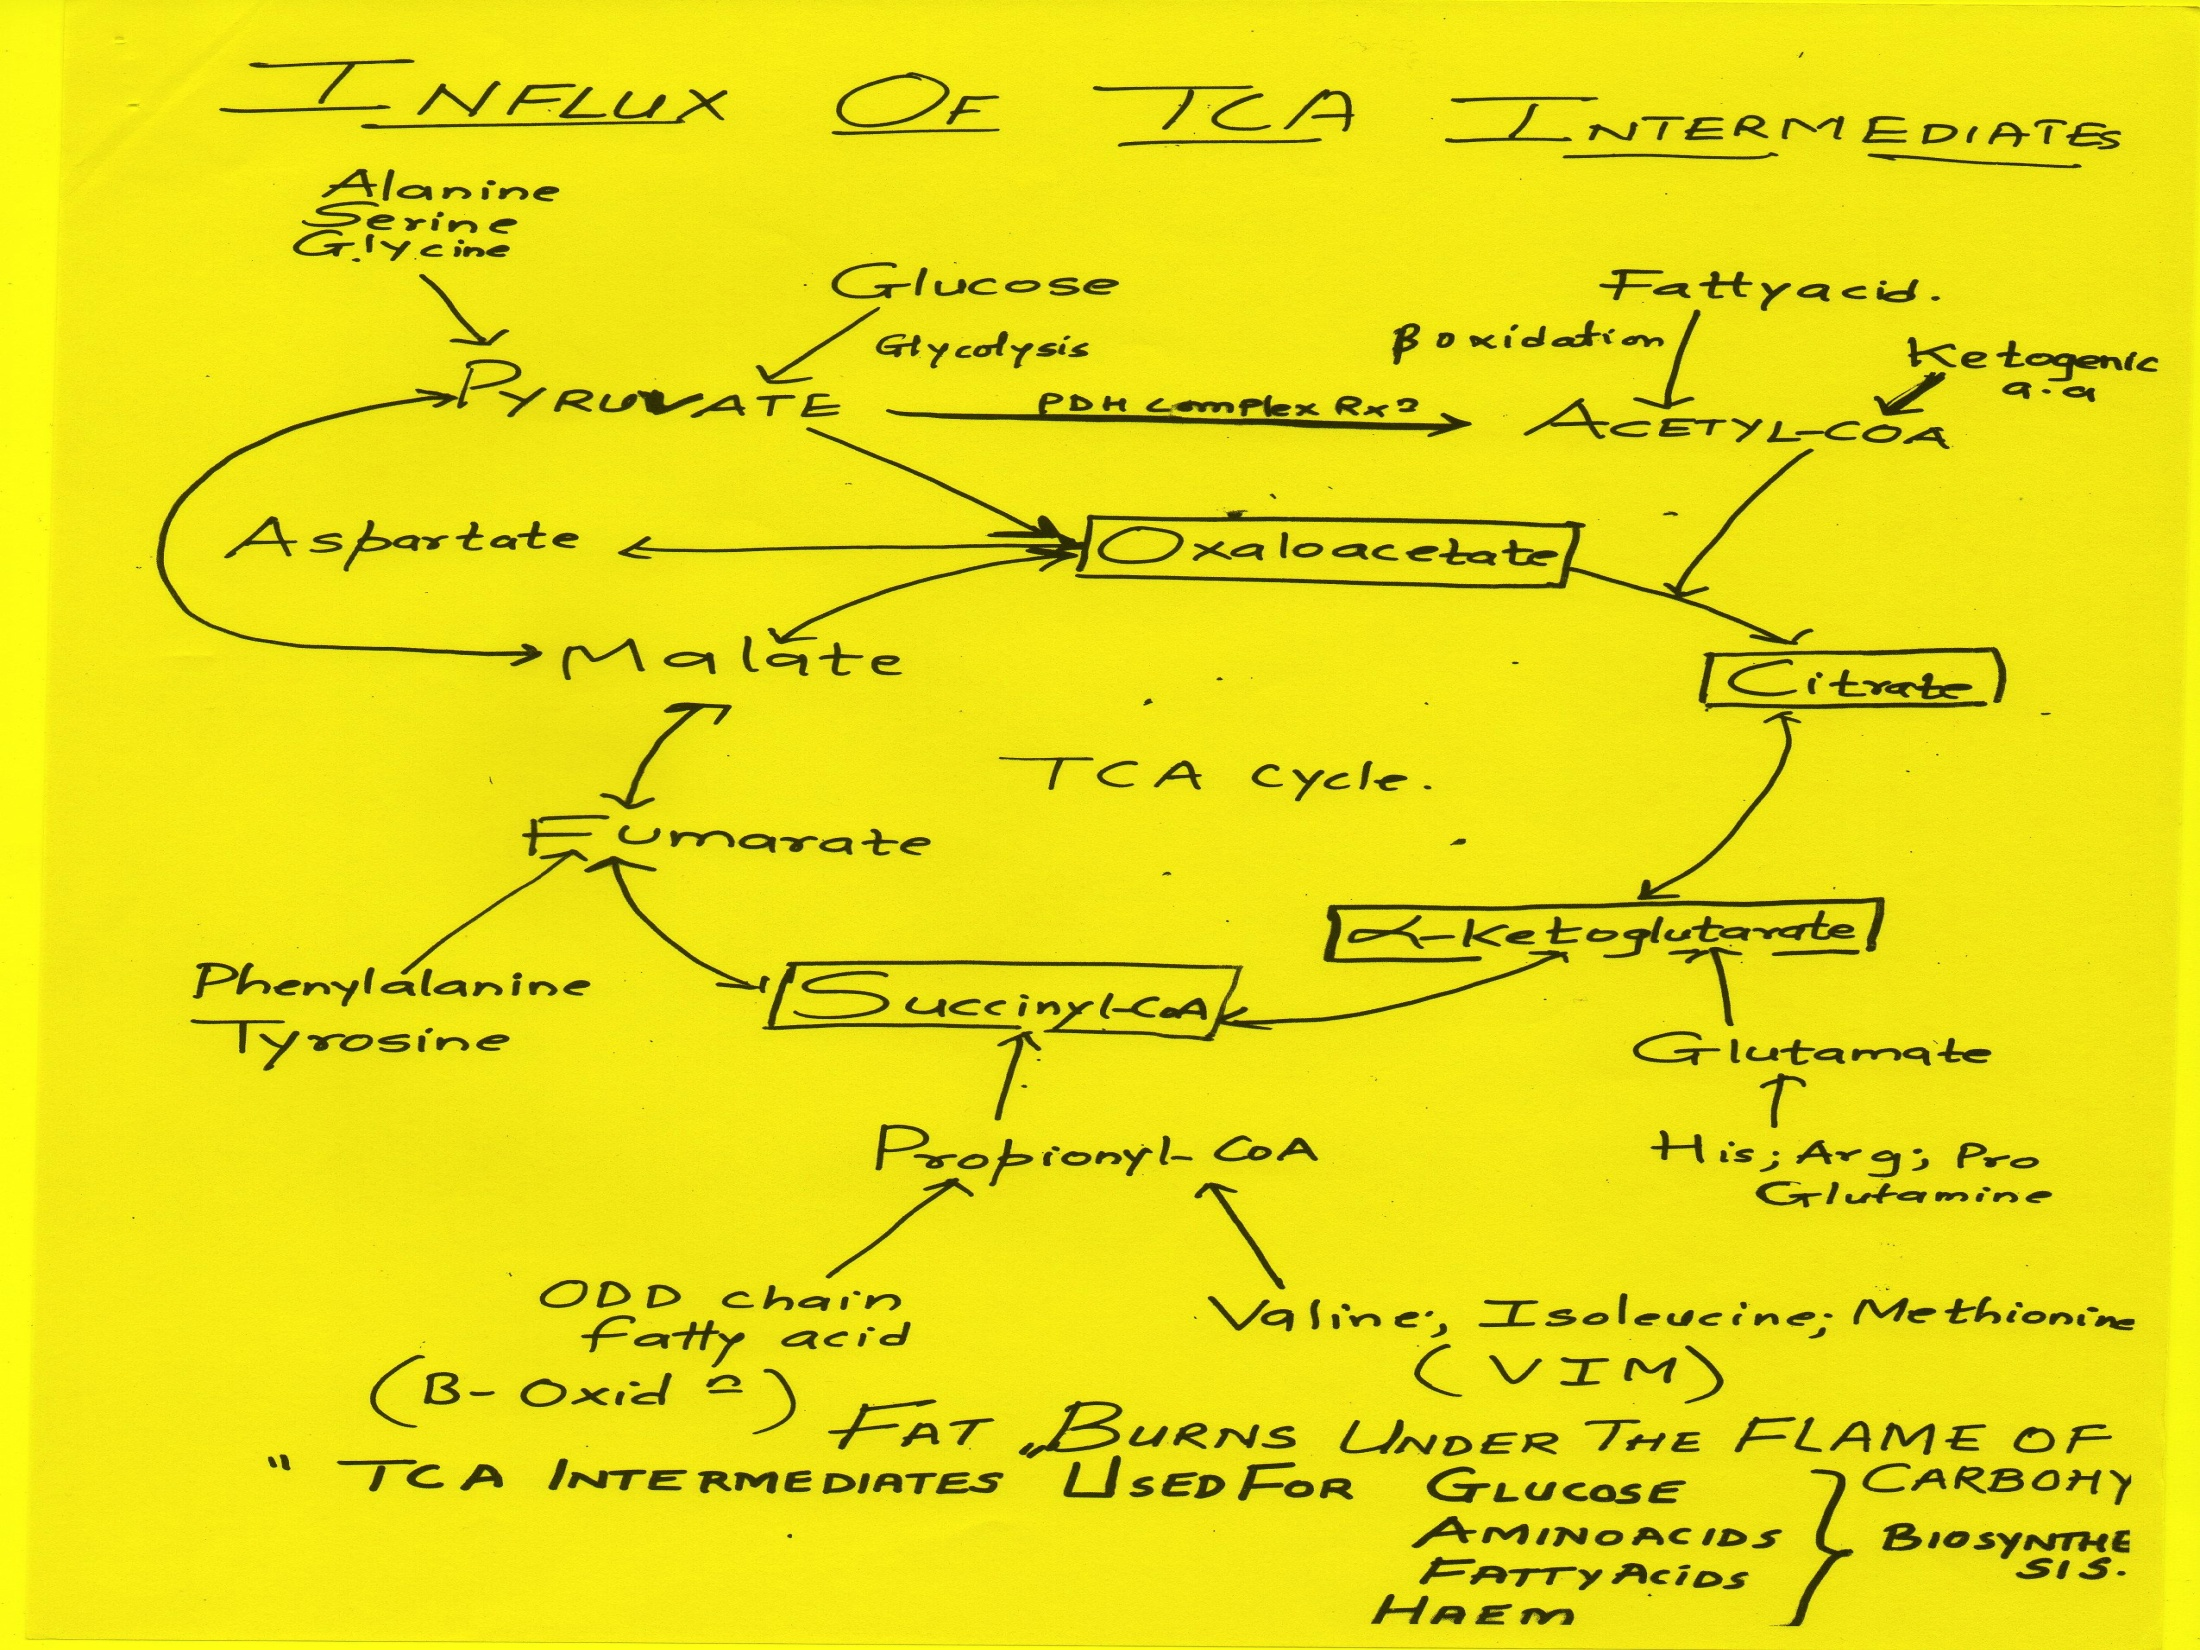 INFLUX OF TCA INTERMEDIATES
Alanine
Serine
Glycine
Glucose
Fattyacid.
Glycolysis
β oxidation
Ketogenic
a.a
PYRUVATE
PDH Complex Rxn
ACETYL-COA
Aspartate
Oxaloacetate
Malate
Citrate
TCA cycle.
Fumarate
α-Ketoglutarate
Phenylalanine
Tyrosine
Succinyl-CoA
Glutamate
Propionyl-CoA
His; Arg; Pro
Glutamine
ODD chain
fatty acid
(B-Oxidn)
Valine; Isoleucine; Methionine
(VIM)
FAT „BURNS UNDER THE FLAME OF
CARBOHY
" TCA INTERMEDIATES USED FOR GLUCOSE
AMINOACIDS
FATTYACIDS
HAEM
BIOSYNTHE
SIS.